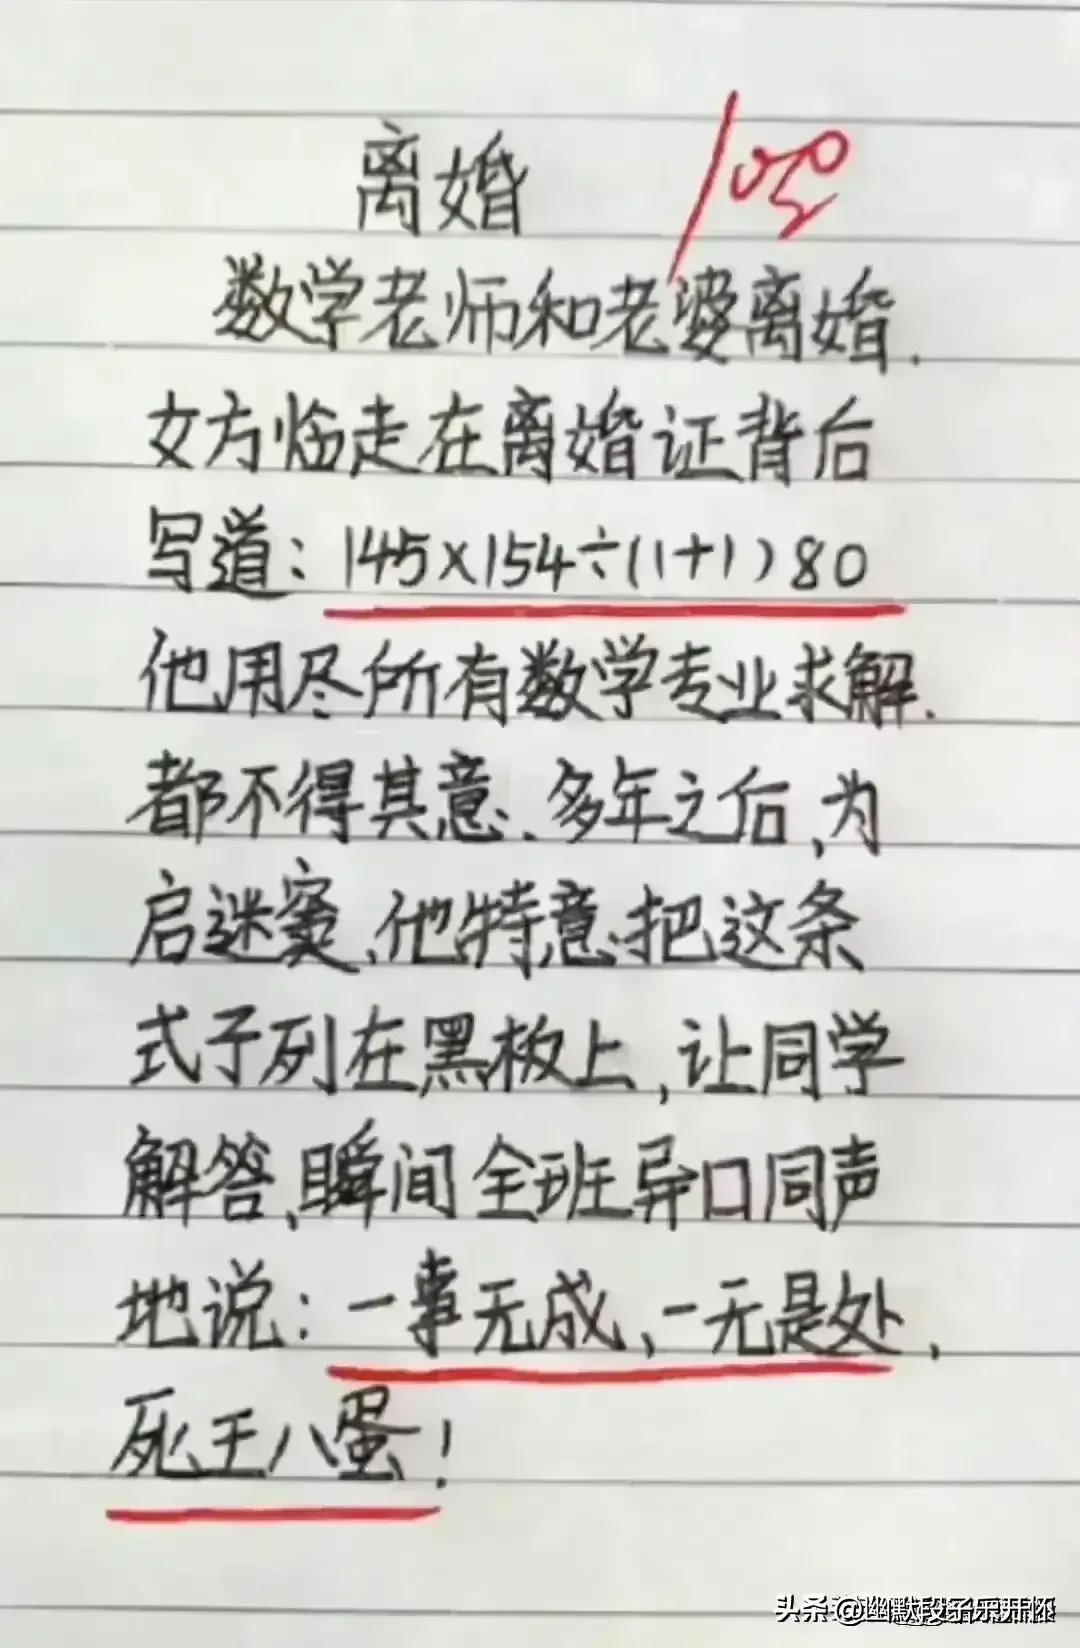 离婚
100
数学老师和老婆离婚.
女方临走在离婚证背后
写道:145×154÷(1+1)80
他用尽所有数学专业求解.
都不得其意、多年之后,为
启迷案、他特意把这条
式子列在黑板上,让同学
解答、瞬间全班异口同声
地说:一事无成、一无是处,
死王八蛋!
头条@幽默段子乐开怀